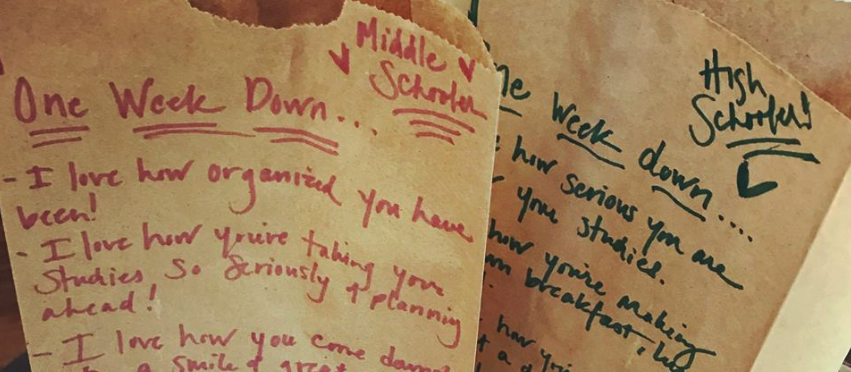 Middle
Schooler
One Week Down...
- I love how organized you have
been!
- I love how you're taking your
studies so seriously & planning
ahead!
- I love how you come down
a smile & great
High
Schooler!
One Week down....
how serious you are
your studies.
how you're making
breakfast,
how